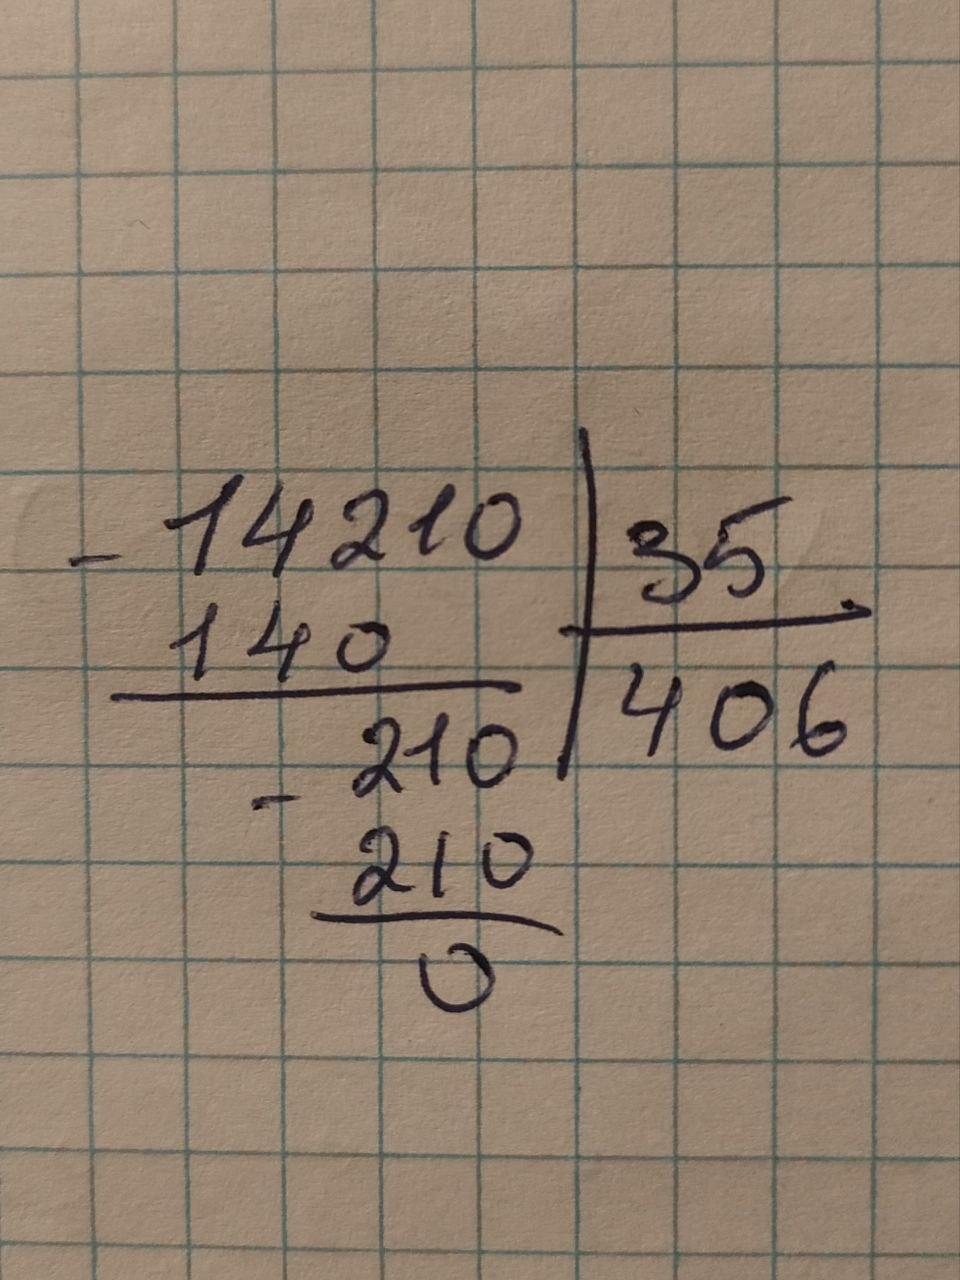 - 14210 35
140 406
- 210
210
0